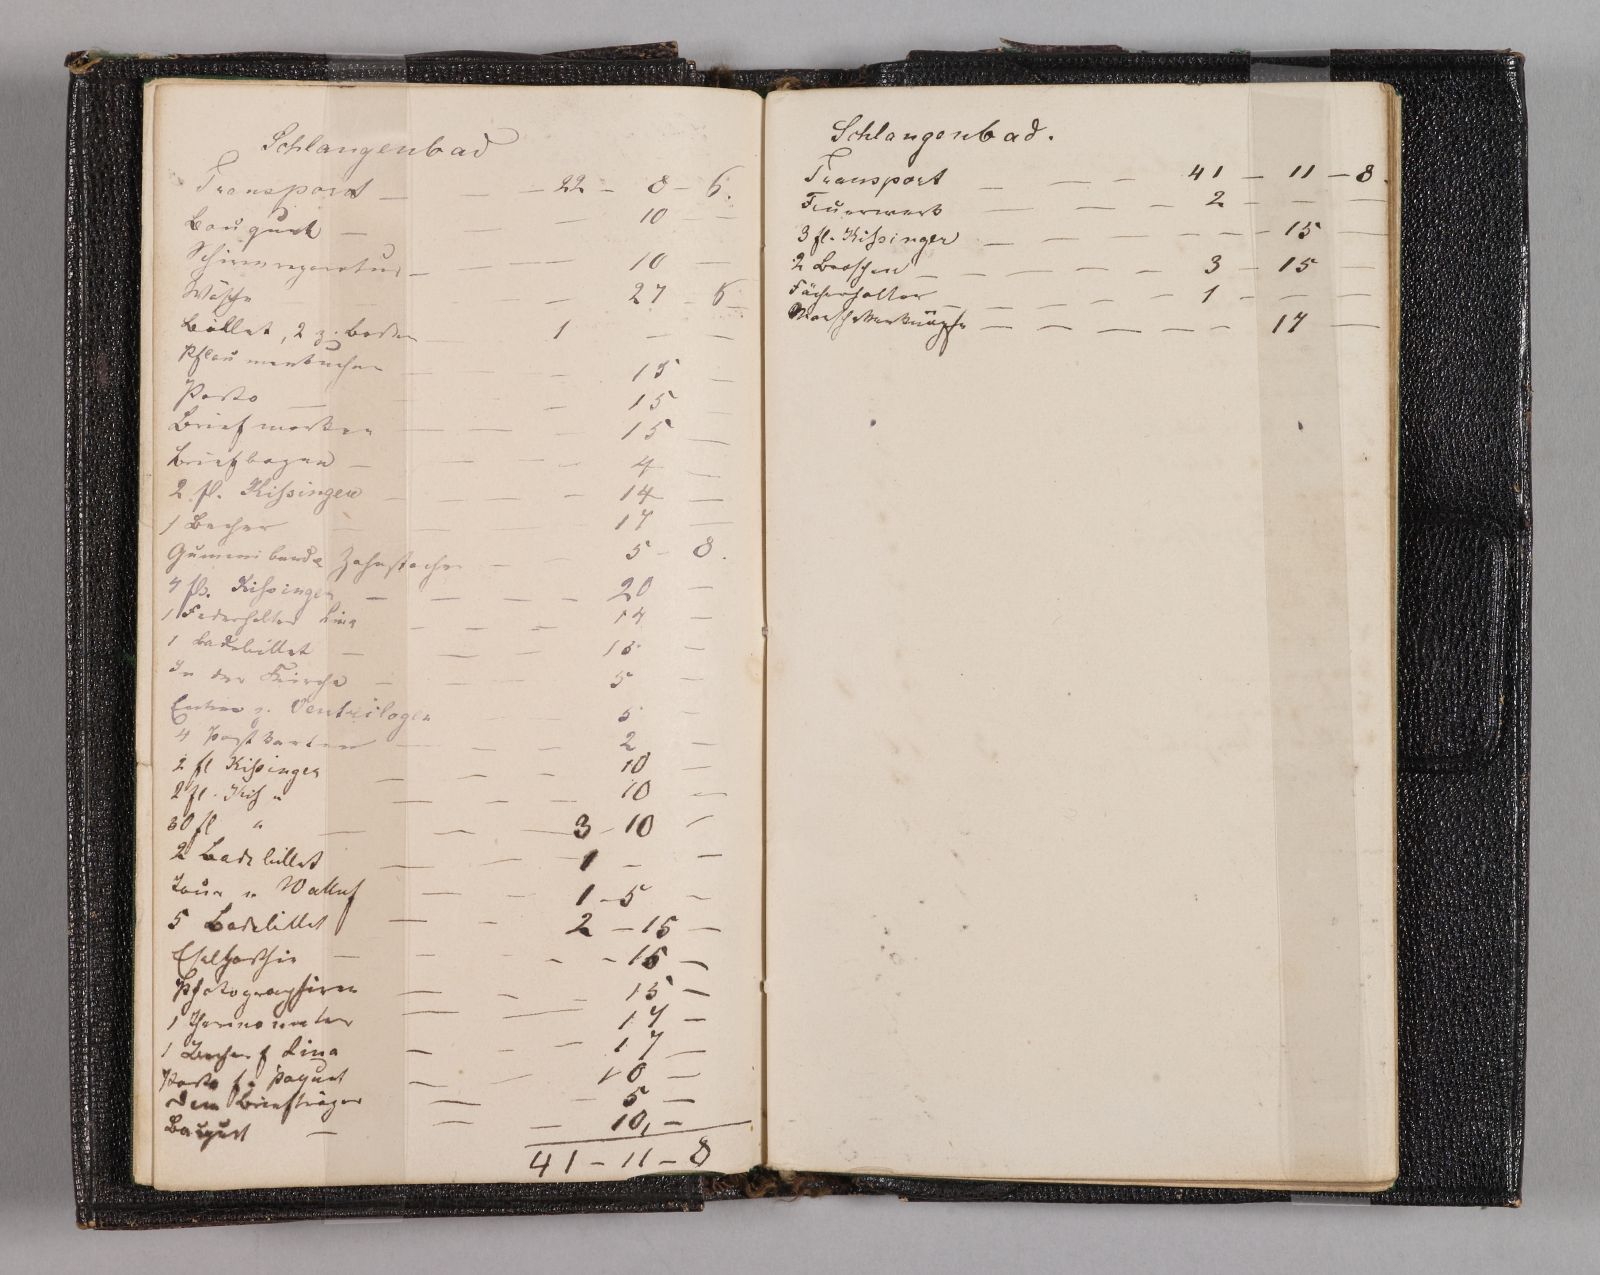 Schlangenbad
Transport — — — 22 — 8 — 6.
Bouquet — — — 10 — —
Schirmreparatur — — — 10 —
Wäsche — — — 27 — 6 —
Billet, 2 z. Baden — 1 — —
Pflaumenkuchen — — — 15 —
Porto — — — 15 —
Briefmarken — — — 15 —
Briefbogen — — — 4 —
2 fl. Kissinger — — — 14 —
1 Becher — — — 17 —
Gummibande Zahnstocher — — 5 — 8.
4 fls. Kissinger — — — 20 —
1 Federhalter Lina — — — 14 —
1 Badebillet — — — 15 —
In der Kirche — — — 5 —
Entree z. Ventriloger — — 5 —
4 Postkarten — — — 2 —
2 fl Kissinger — — — 10 —
2 fl. Kiss " — — — 10 —
30 fl " — — — 3 — 10 —
2 Badebillet — — — 1 — —
Tour n Walluf — — 1 — 5 —
5 Badebillet — — — 2 — 15 —
— — — 15 —
Photographieen — — — 15 —
1 Thermometer — — — 17 —
1 Becher f Lina — — — 17 —
Porto f. Paquet — — 10 —
Dem Briefträger — — 5 —
Bouquet — — — 10, —
41 — 11 — 8
Schlangenbad.
Transport — — — 41 — 11 — 8.
Feuerwerk — — — 2 — — —
3 fl. Kissinger — — — — — 15 —
2 Broschen — — — — — 3 — 15 —
Fächerhalter — — — — 1 — — —
Manschettenknöpfe — — — — — — 17 —